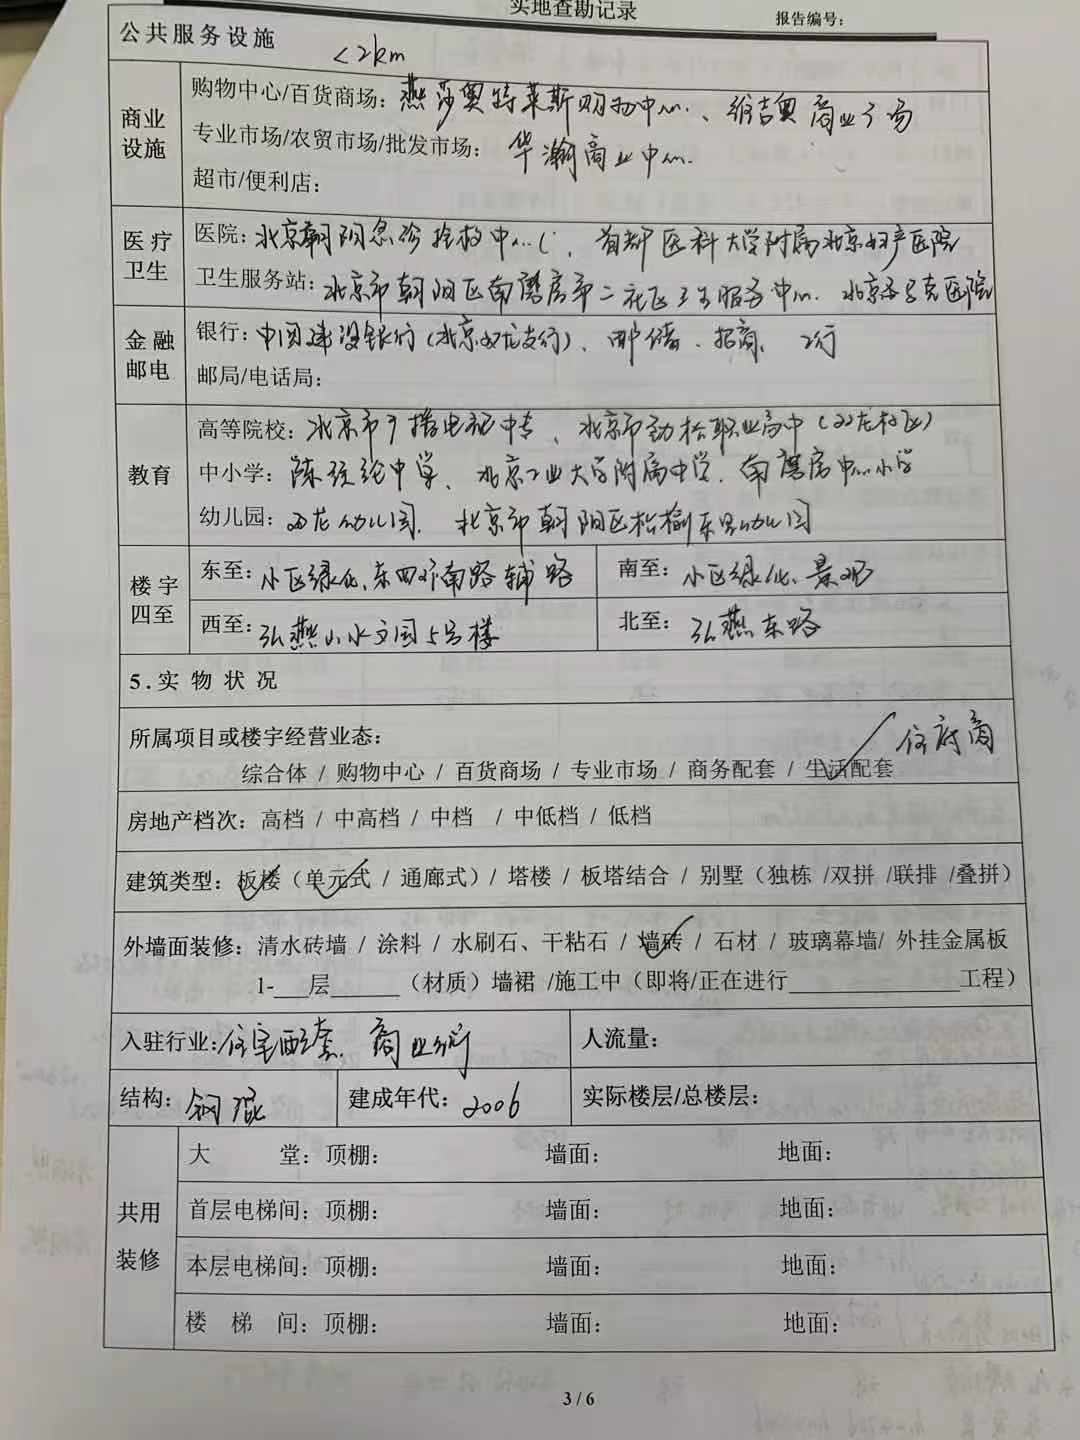 实地查勘记录
报告编号：
公共服务设施 <2km
商业设施
购物中心/百货商场：燕莎奥特莱斯购物中心、维吉奥商业广场
专业市场/农贸市场/批发市场：华瀚商业中心.
超市/便利店：
医疗卫生
医院：北京朝阳急诊抢救中心、首都医科大学附属北京妇产医院
卫生服务站：北京市朝阳区南磨房第二社区卫生服务中心.
金融邮电
银行：中国建设银行(北京双龙支行)、邮储、招商、工行
邮局/电话局：
教育
高等院校：北京市广播电视中专、北京市劲松职业高中(双龙校区)
中小学：陈经纶中学、北京工业大学附属中学.南磨房中心小学
幼儿园：双龙幼儿园.北京市朝阳区松榆东里幼儿园
楼宇四至
东至：小区绿化、东四环南路辅路
南至：小区绿化、景观
西至：弘燕山水文园5号楼
北至：弘燕东路
5.实物状况
所属项目或楼宇经营业态：
综合体 / 购物中心 / 百货商场 / 专业市场 / 商务配套 / 生活配套 住宅商
房地产档次：高档 / 中高档 / 中档 / 中低档 / 低档
建筑类型：板楼（单元式 / 通廊式）/ 塔楼 / 板塔结合 / 别墅（独栋 /双拼 /联排 /叠拼）
外墙面装修：清水砖墙 / 涂料 / 水刷石、干粘石 / 墙砖 / 石材 / 玻璃幕墙/ 外挂金属板
1-___层______（材质）墙裙 /施工中（即将/正在进行_______________工程）
入驻行业：住宅配套、商业 人流量：
结构：钢混 建成年代：2006 实际楼层/总楼层：
共用装修
大堂：顶棚： 墙面： 地面：
首层电梯间：顶棚： 墙面： 地面：
本层电梯间：顶棚： 墙面： 地面：
楼梯间：顶棚： 墙面： 地面：
3 / 6